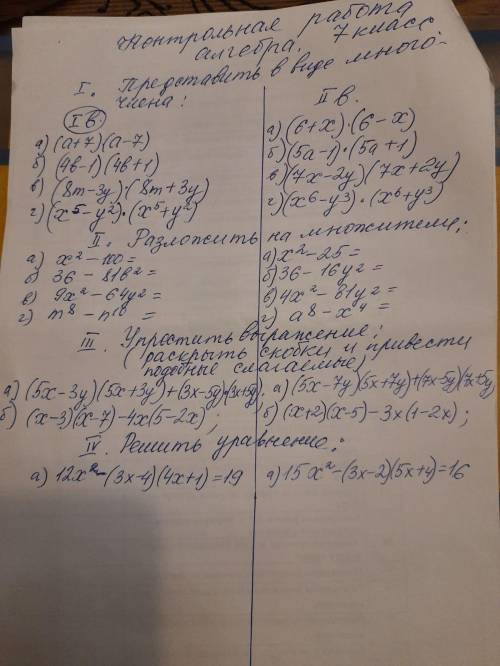 Контрольная работа
алгебра. 7 класс
I. Представить в виде много-
члена:
I в.
а) (a+7)(a-7)
б) (4b-1)(4b+1)
в) (8m-3y)·(8m+3y)
г) (x⁵-y²)·(x⁵+y²)
II в.
а) (6+x)·(6-x)
б) (5a-1)·(5a+1)
в) (7x-2y)(7x+2y)
г) (x⁶-y³)·(x⁶+y³)
II. Разложить на множители:
а) x²-100=
б) 36-81b²=
в) 9x²-64y²=
г) m⁸-n¹⁰=
а) x²-25=
б) 36-16y²=
в) 4x²-81y²=
г) a⁸-x⁴=
III. Упростить выражение:
(раскрыть скобки и привести
подобные слагаемые)
а) (5x-3y)(5x+3y)+(3x-5y)(3x+5y);
б) (x-3)(x-7)-4x(5-2x);
а) (5x-7y)(5x+7y)+(7x-5y)(7x+5y)
б) (x+2)(x-5)-3x(1-2x);
IV. Решить уравнение:
а) 12x²-(3x-4)(4x+1)=19
а) 15x²-(3x-2)(5x+4)=16